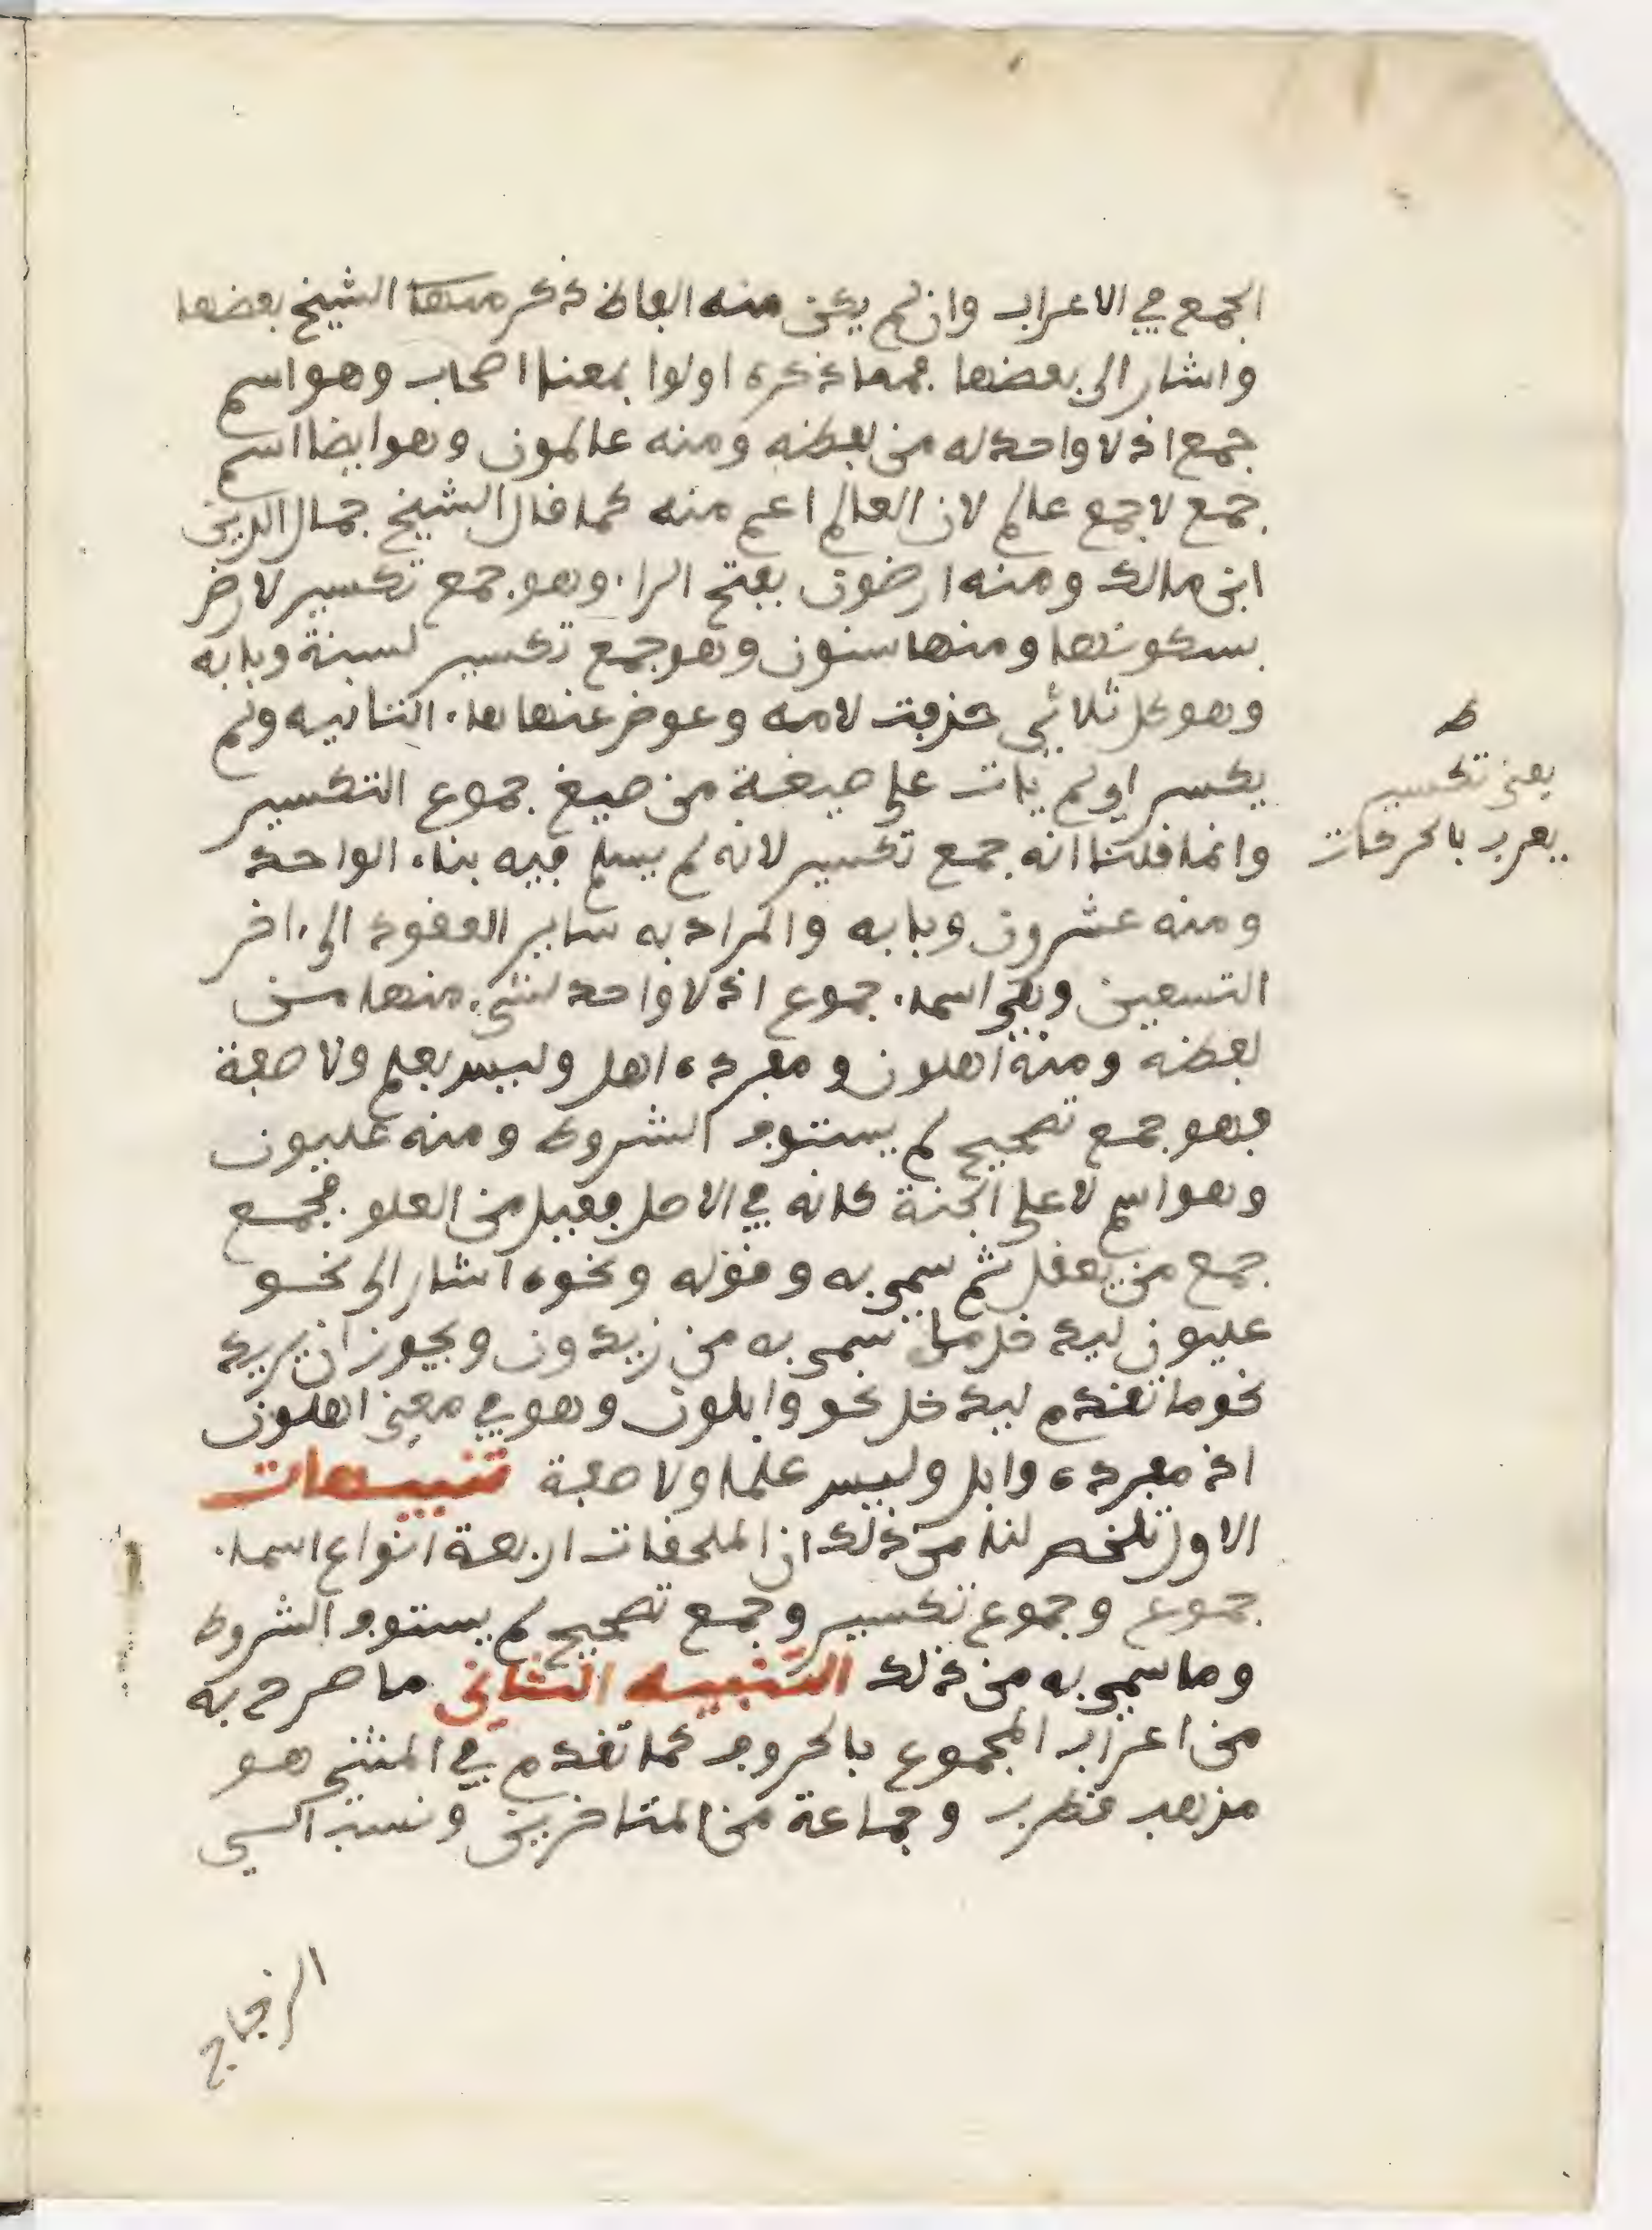 الجمع في الاعراب وان لم يكن منه الفاظ ذكر منها الشيخ بعضها
واشار الى بعضها فمما ذكره اولوا بمعنا اصحاب وهو اسم
جمع اذ لا واحد له من لفظه ومنه عالمون وهو ايضا اسم
جمع لا جمع عالم لان العالم اعم منه كما قال الشيخ جمال الدين
ابن مالك ومنه ارضون بفتح الراء وهو جمع تكسير لارض
بسكونها ومنها سنون وهو جمع تكسير لسنة وبابه
وهو كل ثلاثي حذفت لامه وعوض عنها هاء التانيه ولم
يكسر اي لم يات على صيغة من صيغ جموع التكسير
وانما قلنا انه جمع تكسير لانه لم يسلم فيه بناء الواحد
ومنه عشرون وبابه والمراد به ساير العقود الى ءاخر
التسعين وهي اسماء جموع اذ لا واحد لشيء منها من
لفظه ومنه اهلون ومفرده اهل وليس بعلم ولا صفة
فهو جمع تصحيح لم يستوف الشروط ومنه عليون
وهو اسم لاعلى الجنة كانه في الاصل فعيل من العلو فجمع
جمع من يعقل ثم سمي به وقوله ونحوه اشار الى نحو
عليون ليدخل ما سمي به من زيدون ويجوز ان يريد
نحو ما تقدم ليدخل نحو وابلون وهو في معنى اهلون
اذ مفرده وابل وليس علما ولا صفة تنبيهات
الاول تلخص لنا من ذلك ان الملحقات اربعة انواع اسماء
جموع وجموع تكسير وجمع تصحيح لم يستوف الشروط
وما سمي به من ذلك التنبيه الثاني ما صرح به
من اعراب المجموع بالحروف كما تقدم في المثنى هو
مذهب قطرب وجماعة من المتاخرين ونسب الى
الزجاج
ط
يعني تكسير
يعرب بالحركات